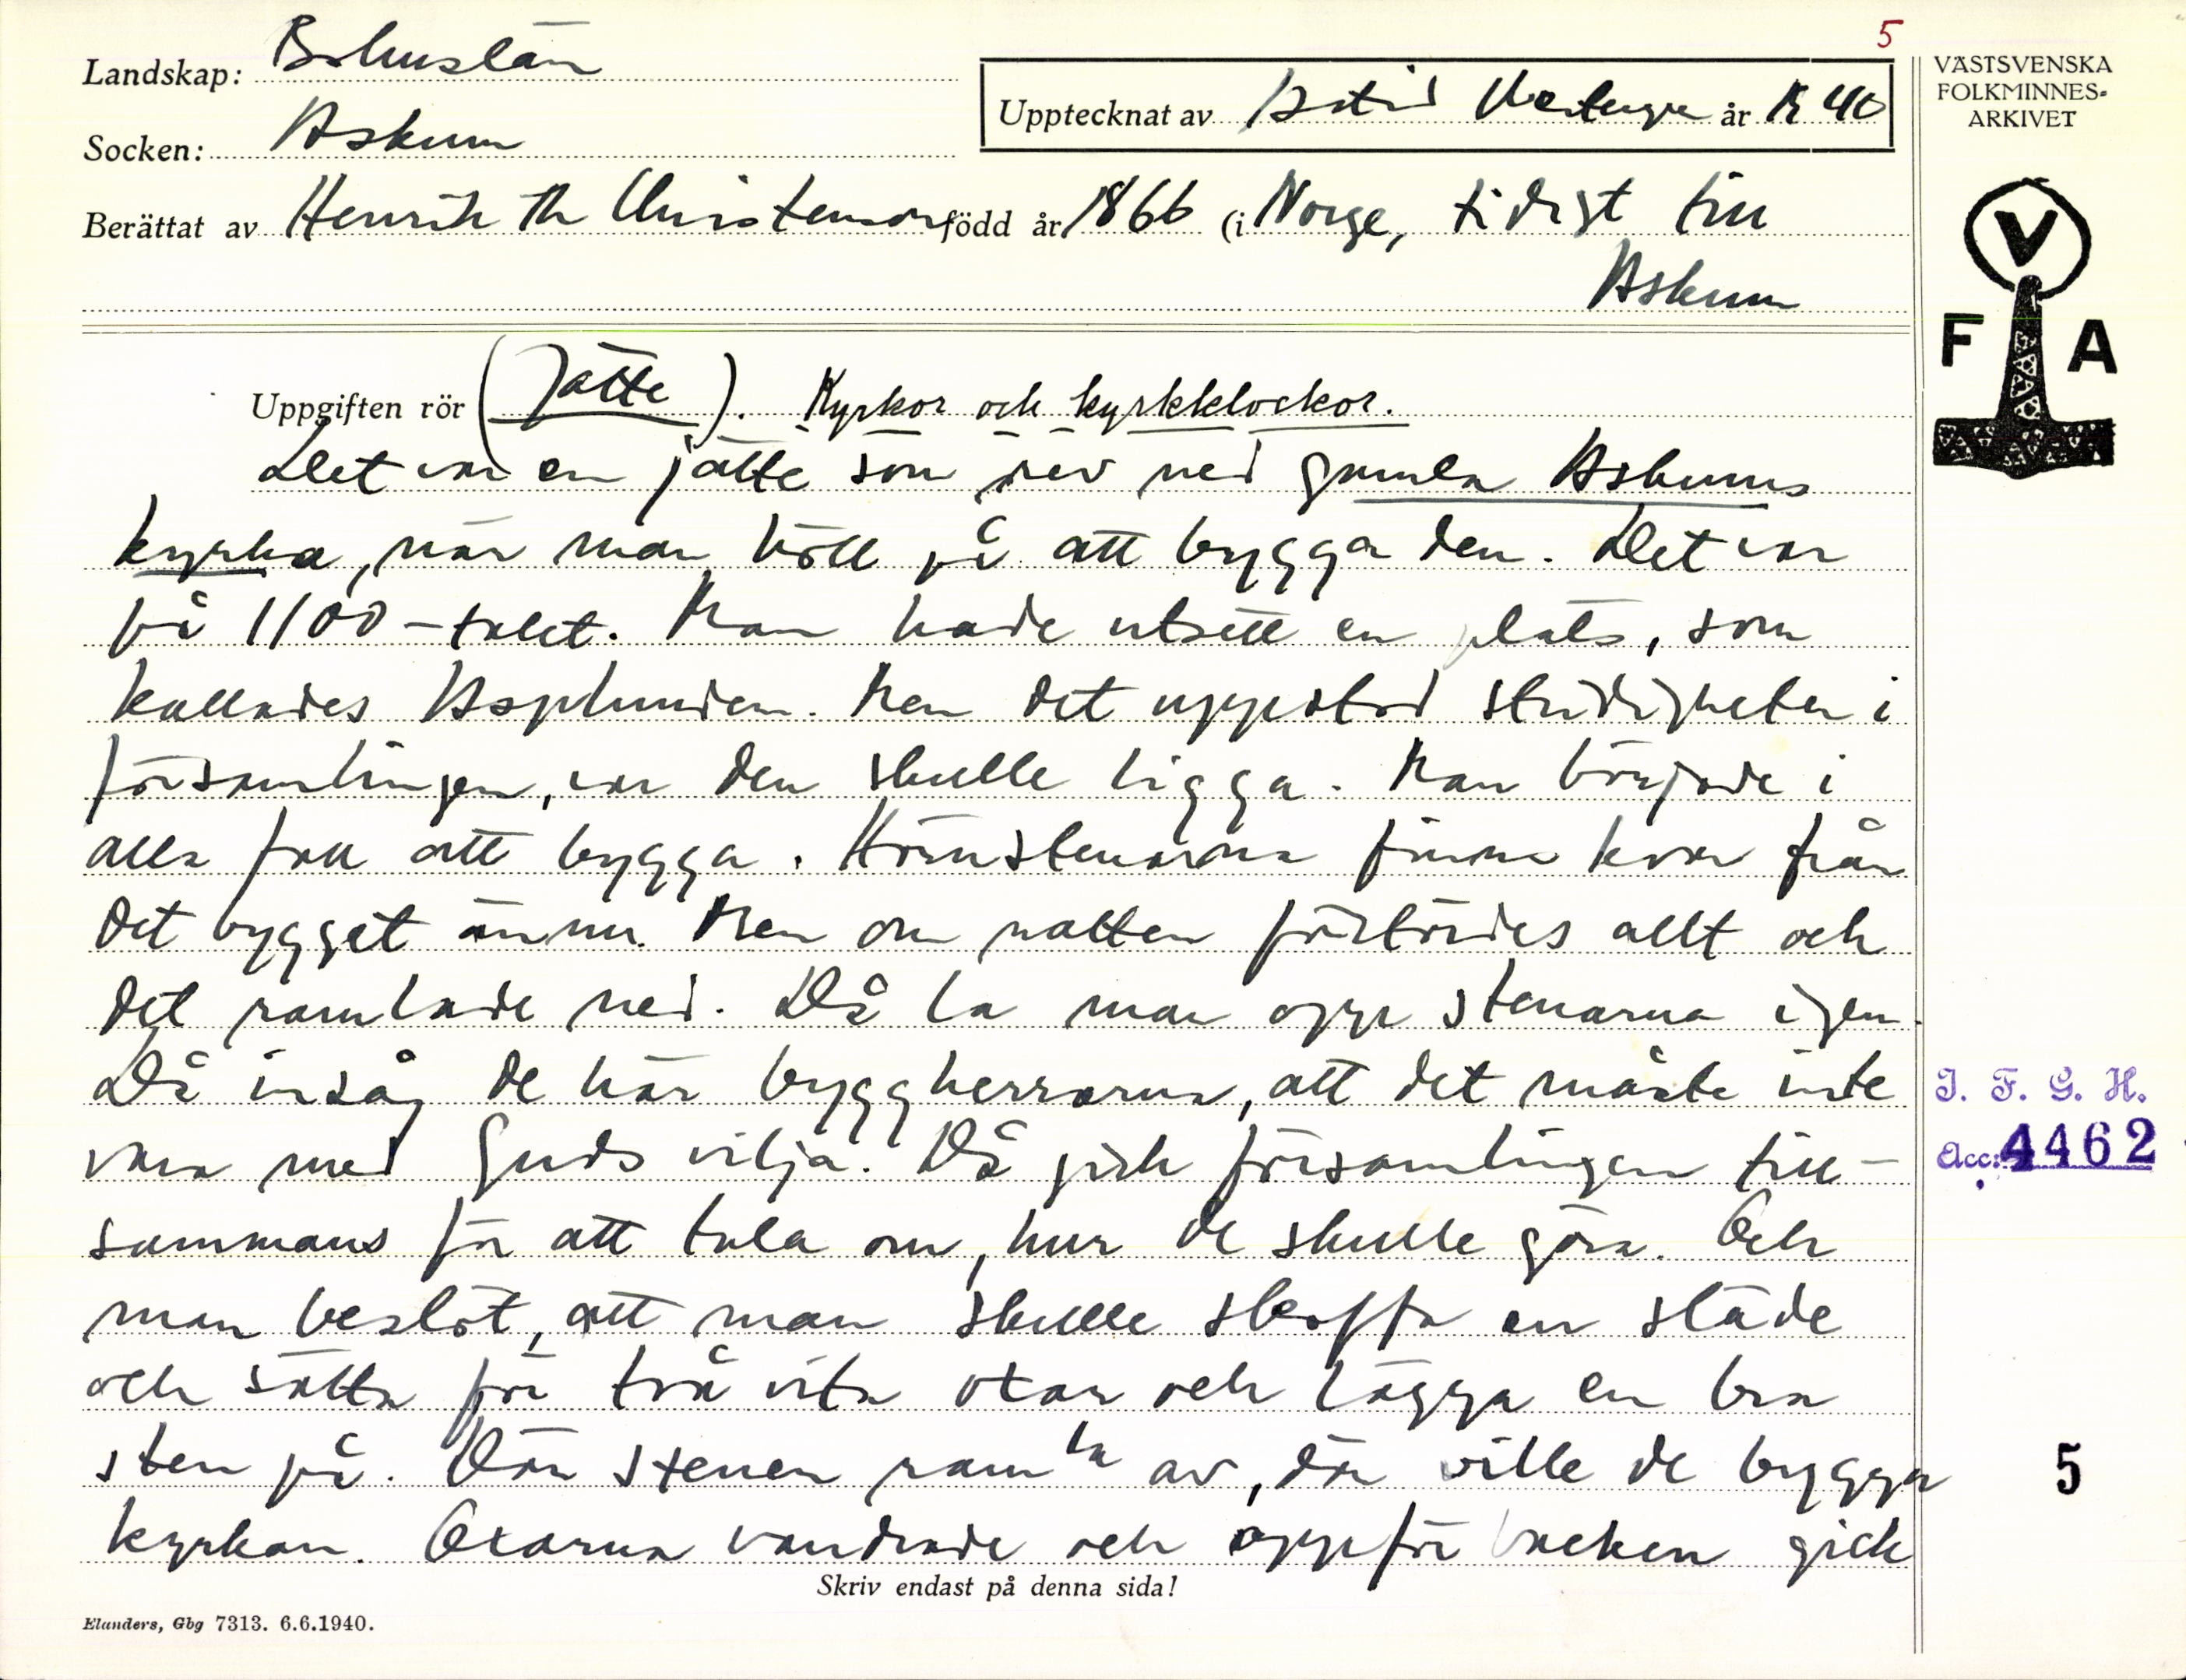 5
Landskap: Bohuslän
Socken: Askum
Upptecknat av Astrid år 1940
Berättat av Henrik Th Christenson född år 1866 (i Norge, tidigt till
Askum
VÄSTSVENSKA
FOLKMINNES-
ARKIVET
V
F A
Uppgiften rör (Jätte). Kyrkor och kyrkklockor.
Det var en jätte som rev ned gamla Askums
kyrka, när man höll på att bygga den. Det var
på 1100-talet. Man hade utsett en plats, som
kallades Asplunden. Men det uppstod stridigheter i
församlingen, var den skulle ligga. Man började i
alla fall att bygga. Hörnstenarna finns kvar från
det bygget ännu. Men om natten förstördes allt och
det ramlade ned. Då la man opp stenarna igen.
Då insåg de här byggherrarna, att det måste inte
vara med Guds vilja. Då gick församlingen till-
sammans för att tala om, hur de skulle göra. Och
man beslöt, att man skulle skaffa en släde
och sätta för två vita oxar och lägga en bra
sten på. Där stenen ramla av, där ville de bygga
kyrkan. Oxarna vandrade och oppför backen gick
J. F. G. H.
Acc: 4462
5
Skriv endast på denna sida!
Elanders, Gbg 7313. 6.6.1940.